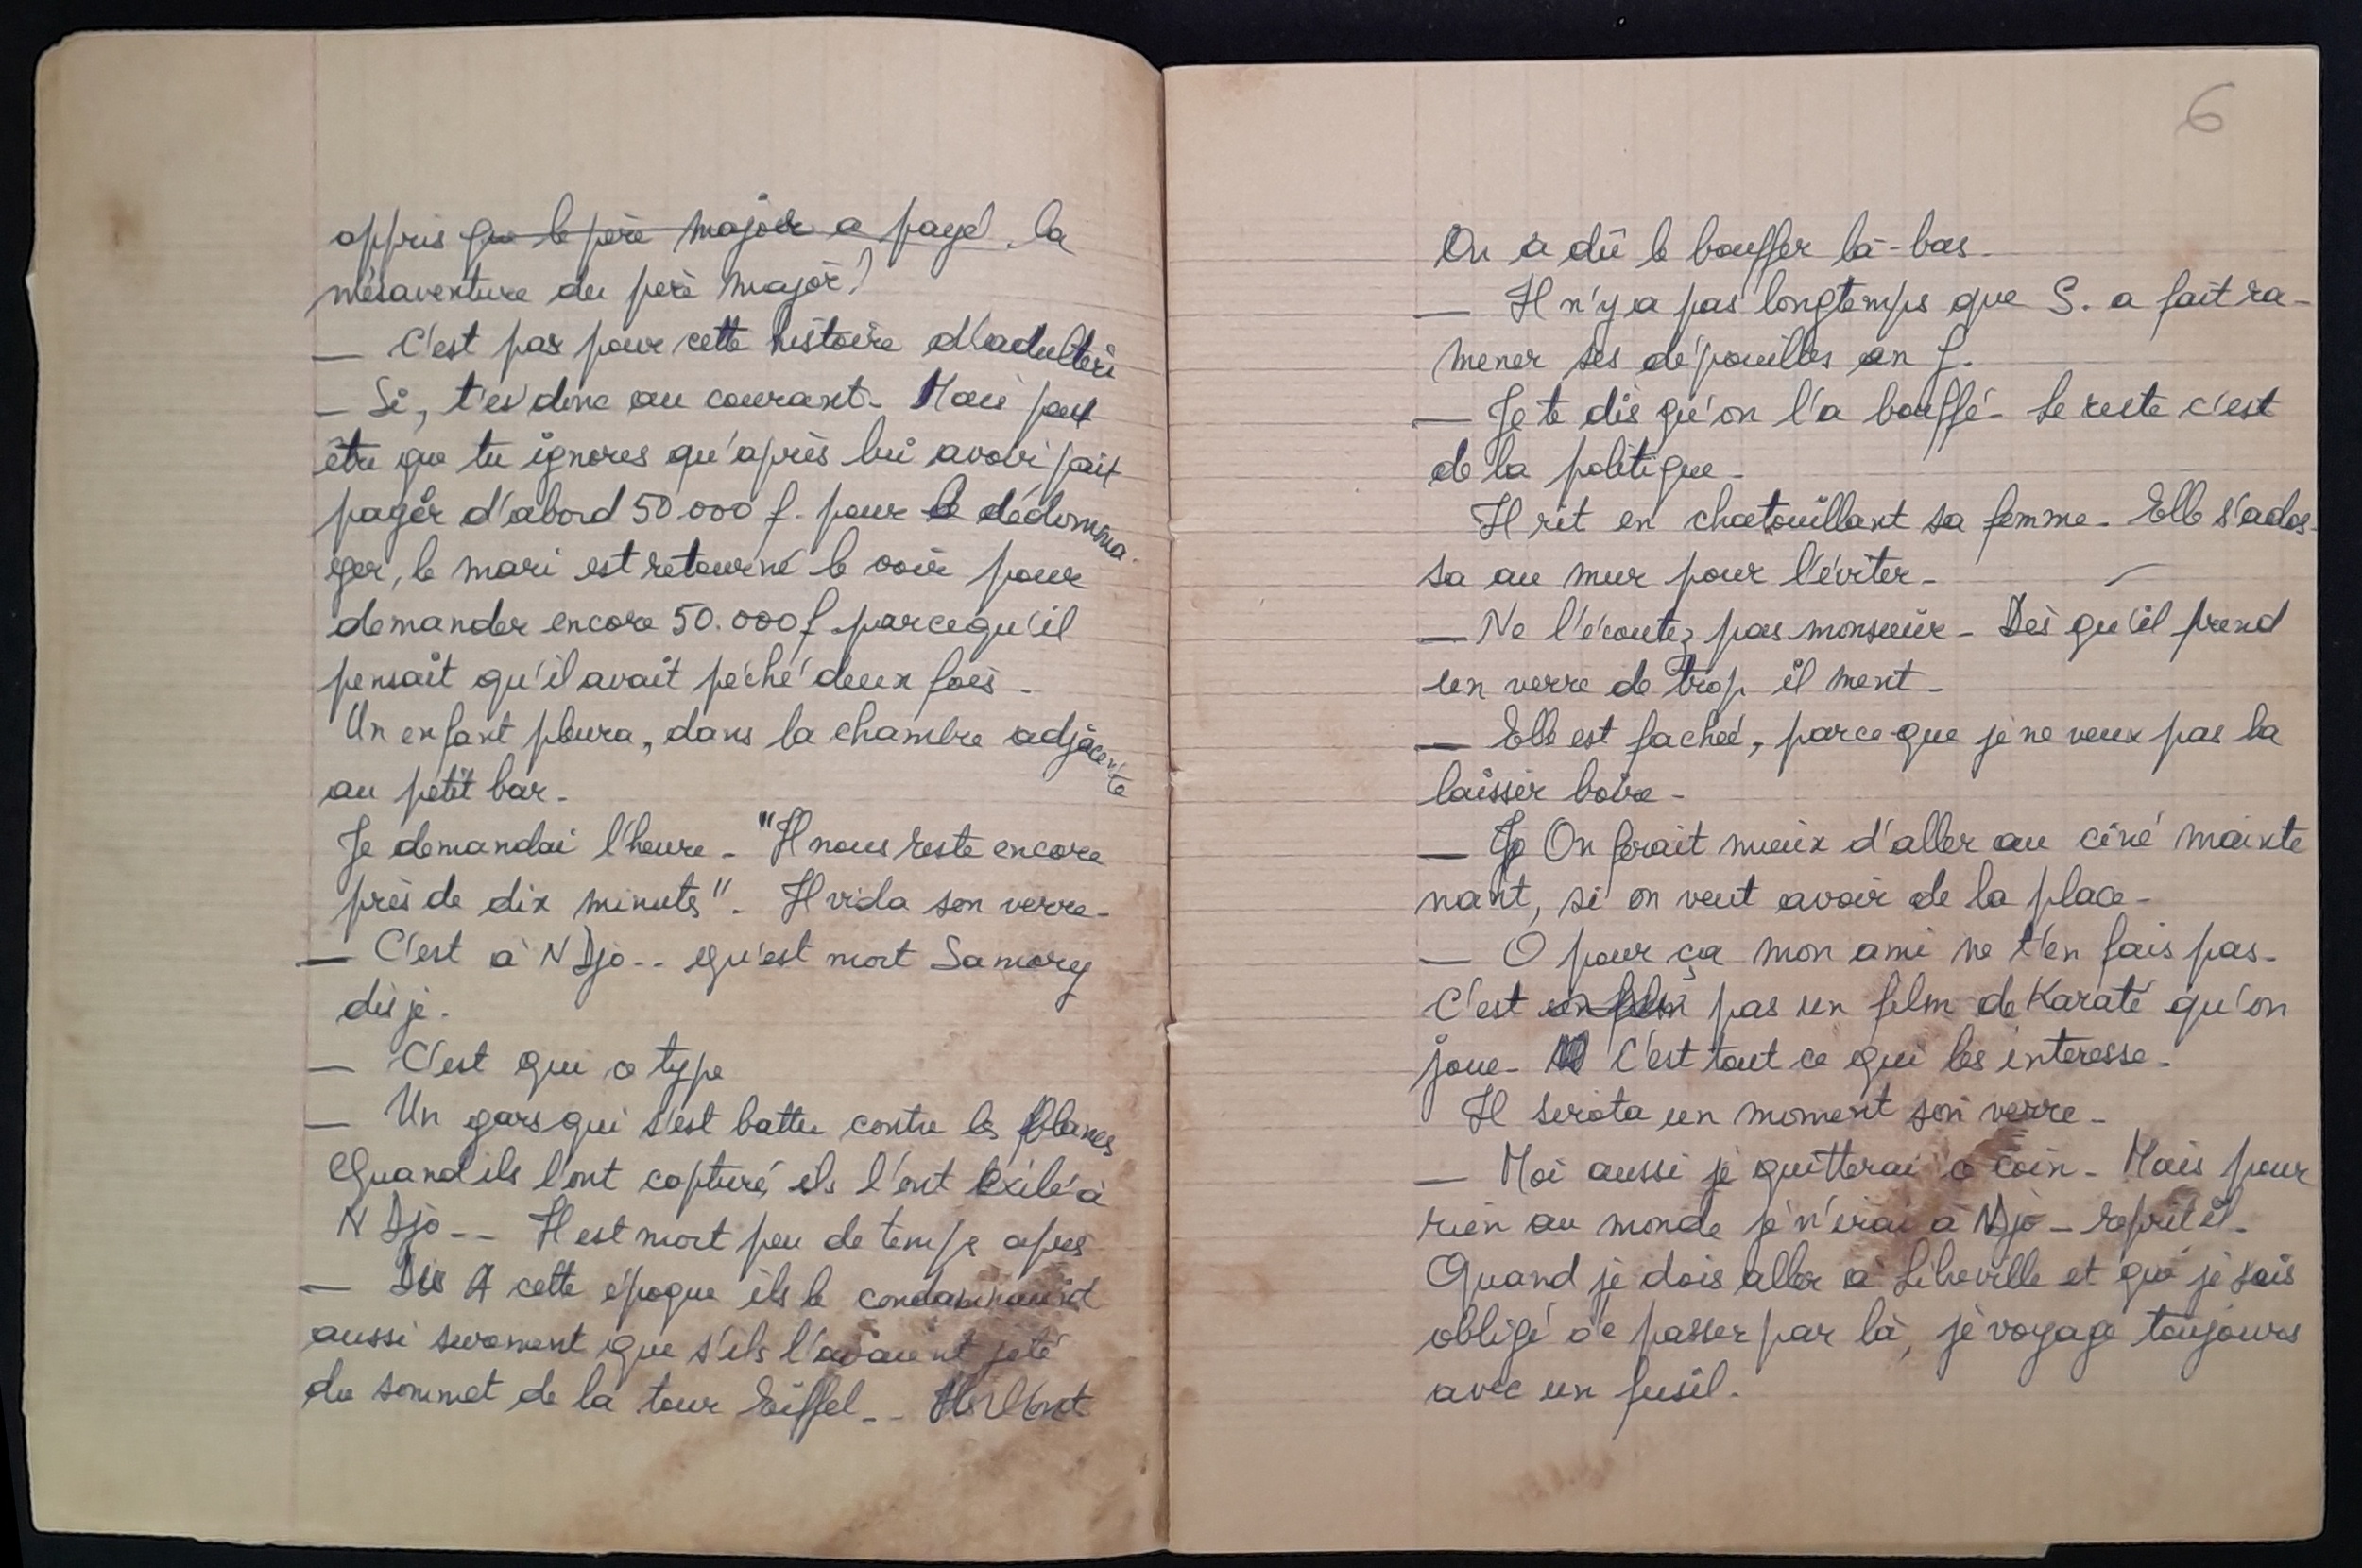 appris que le père major a payé la
mésaventure du père major?
— C'est pas pour cette histoire d'adultère
— Si, t'es donc au courant. Mais peut
être que tu ignores qu'après lui avoir fait
payer d'abord 50 000 f. pour le dédomma-
ger, le mari est retourné le voir pour
demander encore 50.000 f parcequ'il
pensait qu'il avait péché deux fois.
Un enfant pleura, dans la chambre adjacente
au petit bar.
Je demandai l'heure. "Il nous reste encore
près de dix minutes". Il vida son verre.
— C'est à N Djo.. qu'est mort Samory
dis je.
— C'est qui ce type
— Un gars qui s'est battu contre les blancs
Quand ils l'ont capturé, ils l'ont exilé à
N Djo.. Il est mort peu de temps après
— A cette époque ils le condamnaient
aussi surement que s'ils l'avaient jeté
du sommet de la tour Eiffel..
6
On a dû le bouffer là-bas.
— Il n'y a pas longtemps que S. a fait ra-
mener ses dépouilles en f.
— Je te dis qu'on l'a bouffé. Le reste c'est
de la politique.
Il rit en chatouillant sa femme. Elle s'ados-
sa au mur pour l'éviter.
— Ne l'écoutez pas monsieur. Dès qu'il prend
un verre de trop il ment.
— Elle est fachée, parce que je ne veux pas la
laisser boire.
— On ferait mieux d'aller au ciné mainte
nant, si on veut avoir de la place.
— O pour ça mon ami ne t'en fais pas.
C'est un film pas un film de Karaté qu'on
joue. C'est tout ce qui les interesse.
Il sirota un moment son verre.
— Moi aussi je quitterai ce coin. Mais pour
rien au monde je n'irai à N Djo — reprit il.
Quand je dois aller à Libeville et que je suis
obligé de passer par là, je voyage toujours
avec un fusil.